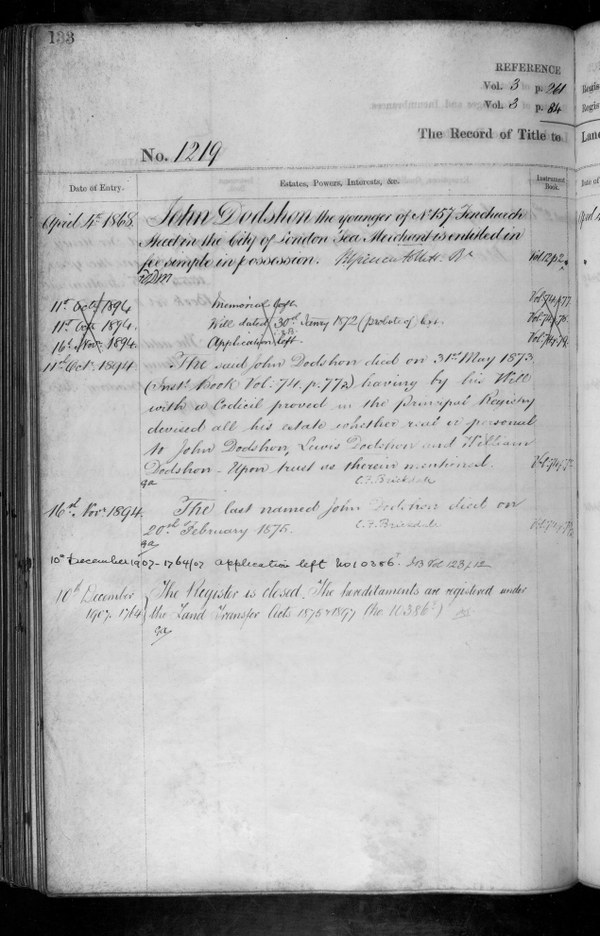 133
REFERENCE
Vol. 3 p. 261
Vol. 3 p. 84
The Record of Title to
No. 1219
Date of Entry. Estates, Powers, Interests, &c. Instrument Book.
April 4th 1868. John Dodshon the younger of No 157 Fenchurch
Street in the City of London Tea Merchant is entitled in
fee simple in possession. Vol 12 p 2
11th Octr 1894 Memorial left Vol 74 p 77
11th Octr 1894. Will dated 30th Jany 1872 (probate of) left Vol 74 p 78
16th Novr 1894. Application left Vol 74 p 79
11th Octr 1894. The said John Dodshon died on 31st May 1873
(Inst. Book Vol. 74. p. 772) having by his Will
with a Codicil proved in the Principal Registry
devised all his estate whether real or personal
to John Dodshon, Lewis Dodshon and William
Dodshon - Upon trust as therein mentioned.
C. F. Brickdale
16th Novr 1894. The last named John Dodshon died on
20th February 1875. C. F. Brickdale
10th December 1907-1764/07 application left
10th December The Register is closed. The hereditaments are registered under
1907. 1764 the Land Transfer Acts 1875 & 1897
Regis
Regis
Land
Date of
April 4